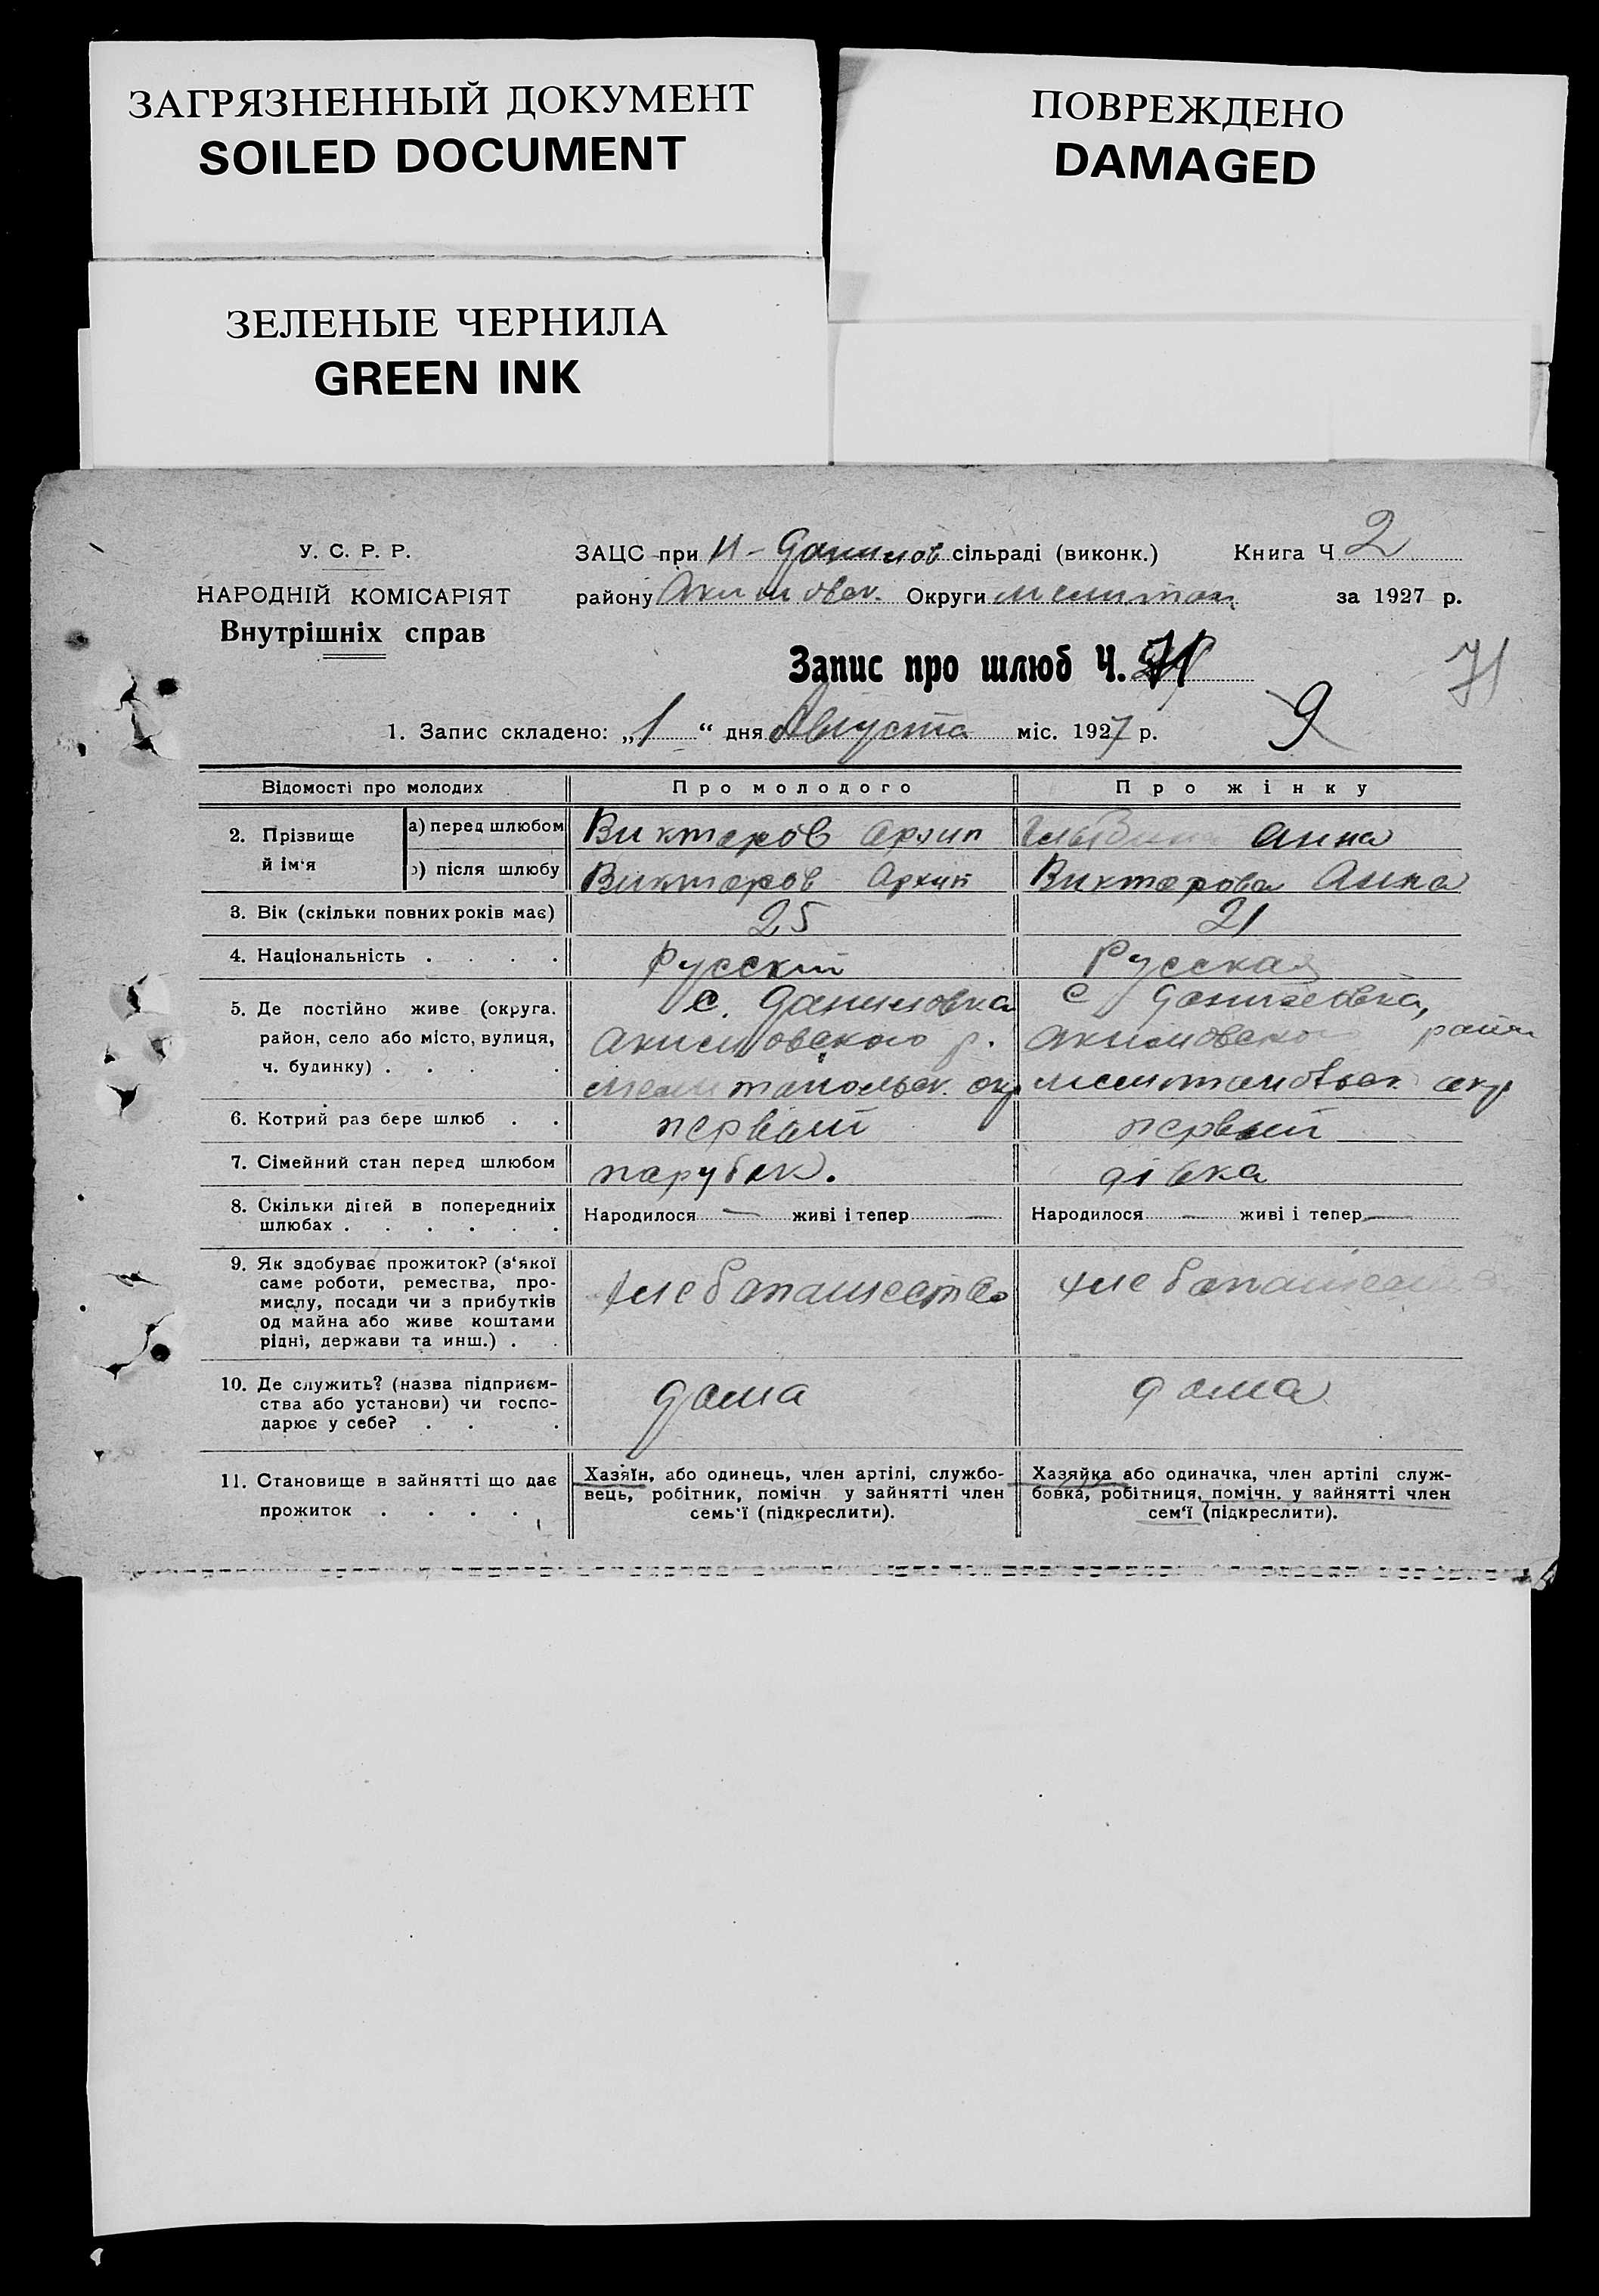 ЗАГРЯЗНЕННЫЙ ДОКУМЕНТ
SOILED DOCUMENT
ПОВРЕЖДЕНО
DAMAGED
ЗЕЛЕНЫЕ ЧЕРНИЛА
GREEN INK
У. С. Р. Р.
НАРОДНІЙ КОМІСАРІЯТ
Внутрішніх справ
ЗАЦС при Н-Данилов сільраді (виконк.) Книга Ч 2
району Акимовск. Округи Мелитоп за 1927 р.
Запис про шлюб Ч. 71
71
1. Запис складено: „1“ дня Августа міс. 1927 р.
9
Відомості про молодих Про молодого Про жінку
2. Прізвище й ім'я
а) перед шлюбом Викторов Архип Анна
б) після шлюбу Викторов Архип Викторова Анна
3. Вік (скільки повних років має) 25 21
4. Національність . . . . Русский Русская
5. Де постійно живе (округа, с. Даниловка с Даниловка,
район, село або місто, вулиця, Акимовского р. Акимовского район
ч. будинку) . . . . Мелитопольск. окр Мелитопольск. окр
6. Котрий раз бере шлюб . . первый первый
7. Сімейний стан перед шлюбом парубок. дівка
8. Скільки дітей в попередніх Народилося — живі і тепер — Народилося — живі і тепер —
шлюбах . . . . . .
9. Як здобуває прожиток? (з'якої
саме роботи, ремества, про- хлебопашество хлебопашество
мислу, посади чи з прибутків
од майна або живе коштами
рідні, держави та инш.) . .
10. Де служить? (назва підприєм- дома дома
ства або установи) чи госпо-
дарює у себе? . . .
11. Становище в зайнятті що дає
прожиток . . . .
Хазяїн, або одинець, член артілі, службо-
вець, робітник, помічн у зайнятті член
семь'ї (підкреслити).
Хазяйка або одиначка, член артілі служ-
бовка, робітниця, помічн. у зайнятті член
сем'ї (підкреслити).